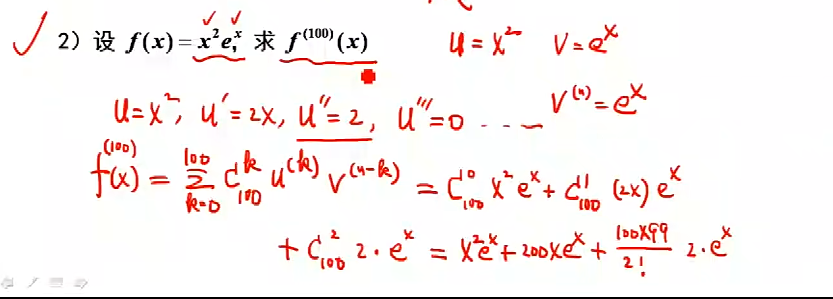 2）设 f(x)=x²eˣ, 求 f⁽¹⁰⁰⁾(x) u=x² v=eˣ
u=x², u'=2x, u''=2, u'''=0 ---- v⁽ⁿ⁾=eˣ
f⁽¹⁰⁰⁾(x) = ∑_{k=0}^{100} C_{100}^{k} u⁽ᵏ⁾ v⁽ⁿ⁻ᵏ⁾ = C_{100}^{0} x²eˣ + C_{100}^{1} (2x) eˣ
+ C_{100}^{2} 2·eˣ = x²eˣ + 200xeˣ + \frac{100×99}{2!} 2·eˣ